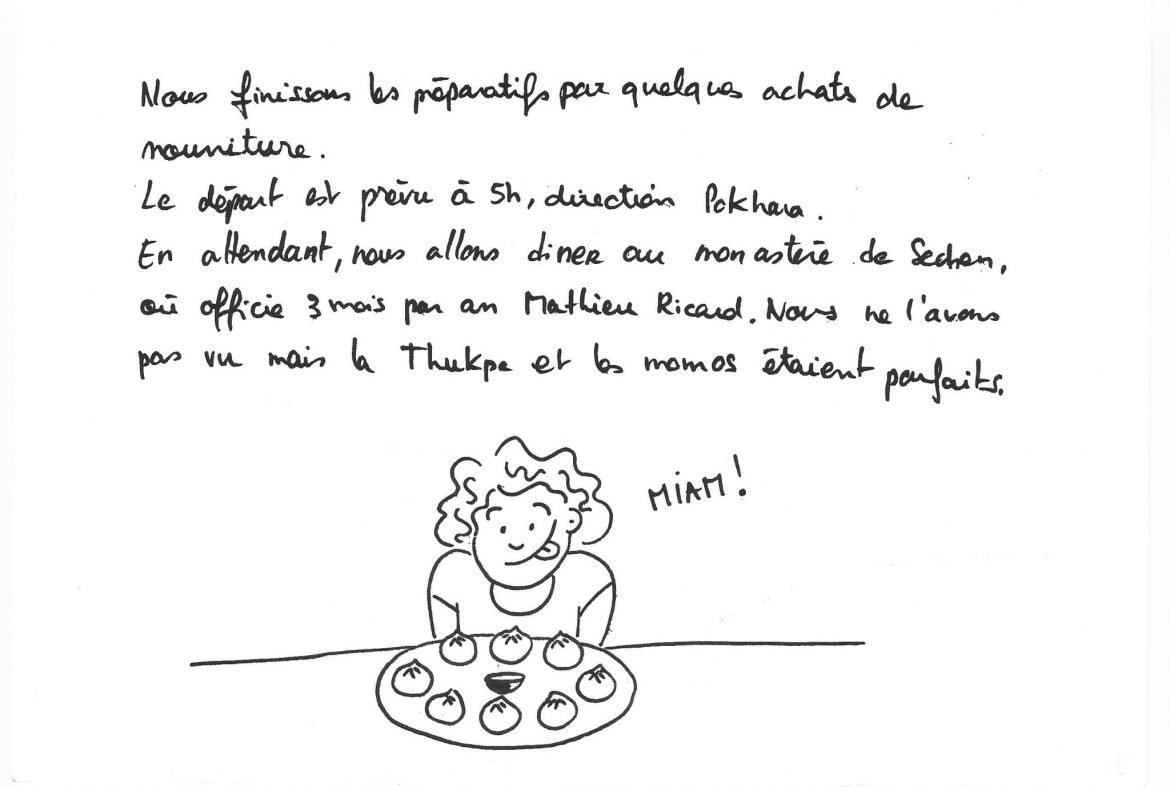 Nous finissons les préparatifs par quelques achats de
nourriture.
Le départ est prévu à 5h, direction Pokhara.
En attendant, nous allons diner au monastère de Sechen,
où officie 3 mois par an Mathieu Ricard. Nous ne l'avons
pas vu mais la Thukpa et les momos étaient parfaits.
MIAM !